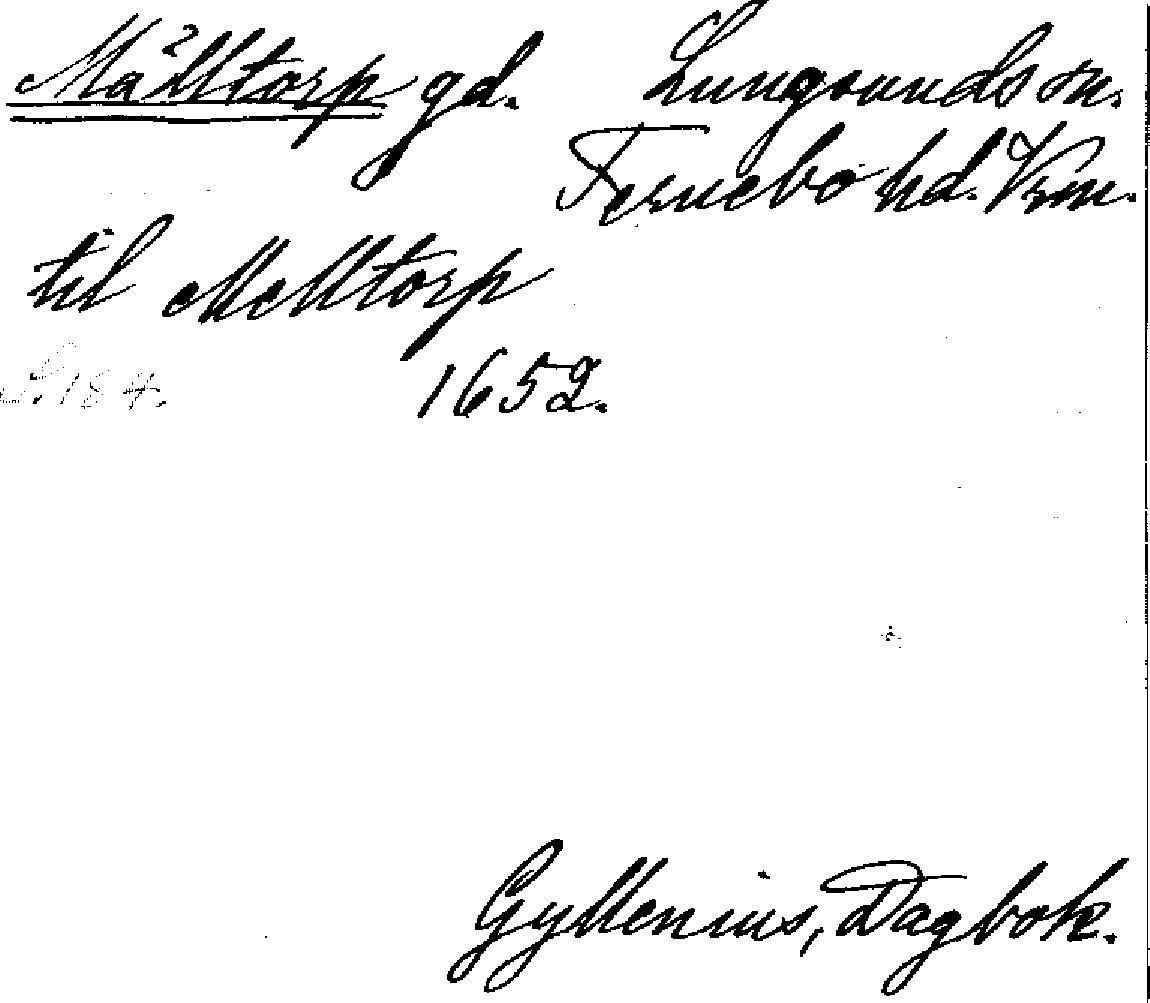 Mälltorp gd. Lungsunds sn.
Fernebo hd. Vrm.
til Melltorp
S. 184. 1652.
Gyllenius, Dagbok.